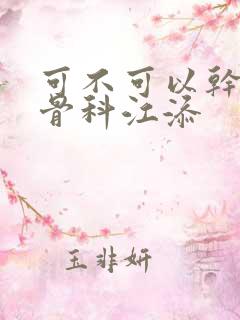 可不可以幹
骨科江添
玉非妍